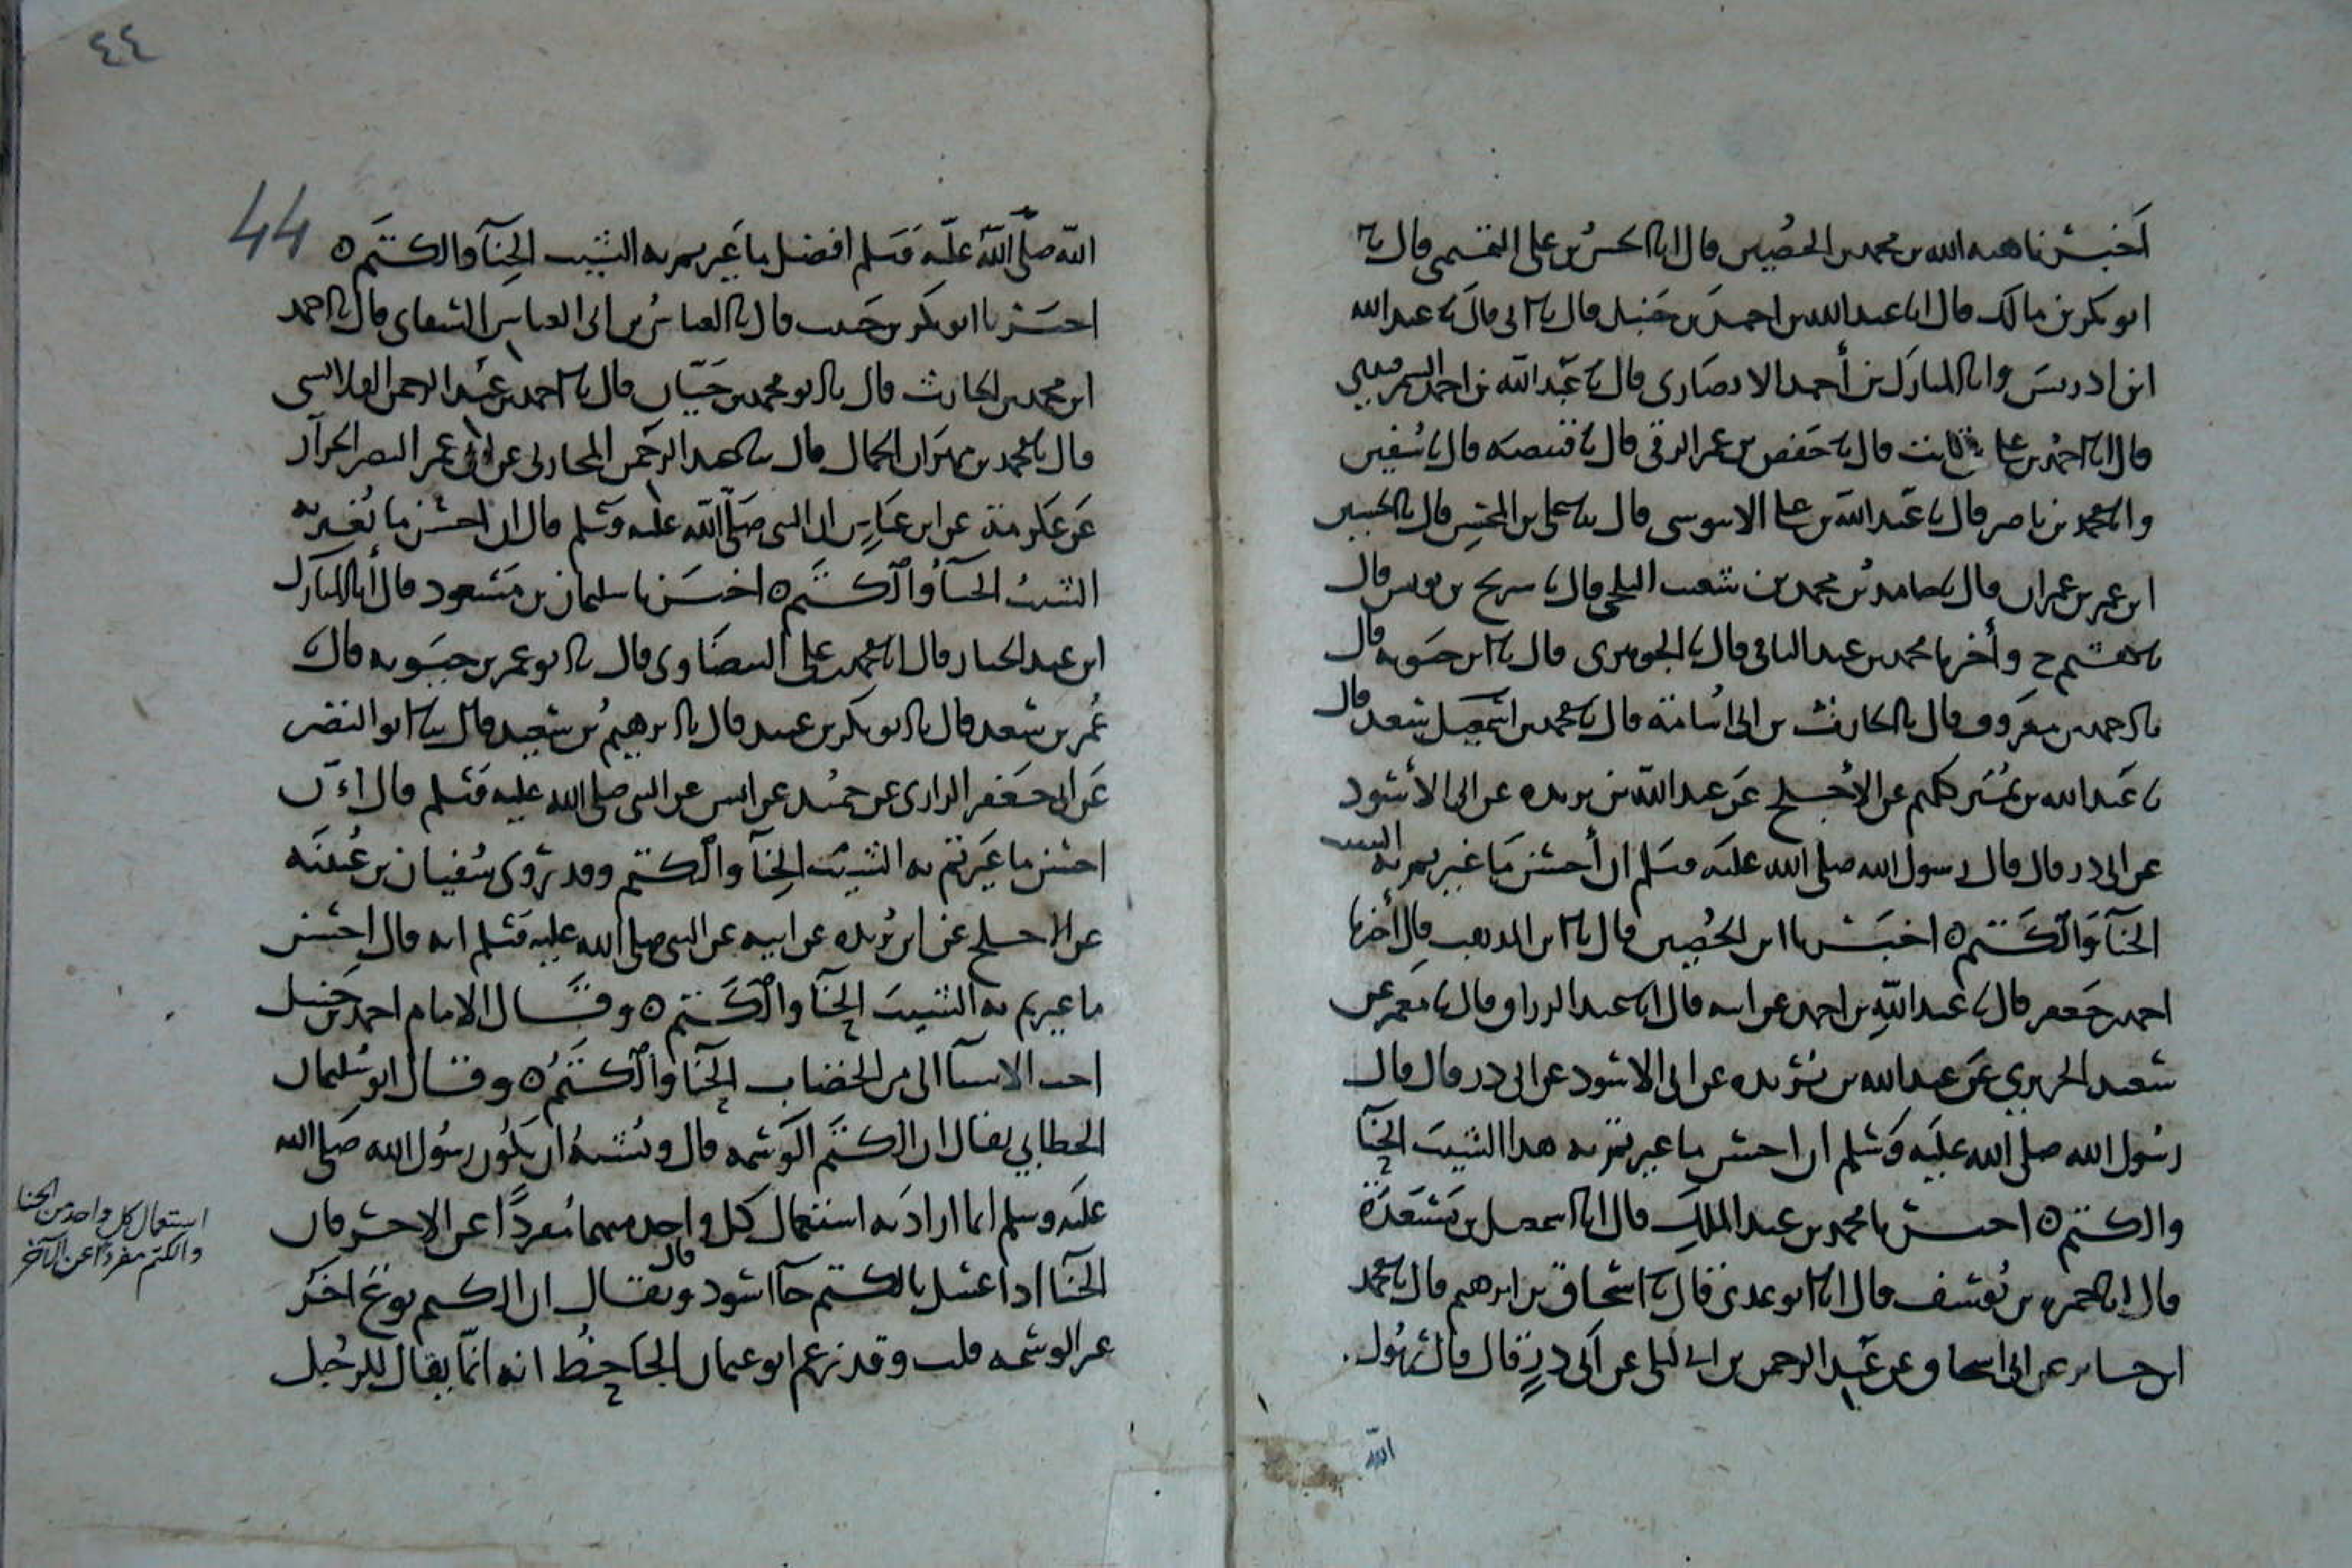 أخبرنا هبة الله بن محمد بن الحصين قال انا الحسن بن علي التميمي قال نا
ابو بكر بن مالك قال انا عبد الله بن احمد بن حنبل قال نا ابي قال نا عبد الله
ابن ادريس وانا المبارك بن أحمد الانصاري قال نا عبد الله بن احمد السمرقندي
قال انا احمد بن علي بن ثابت قال نا حفص بن عمر الرقي قال نا قبيصة قال نا سفين
وانا محمد بن ناصر قال نا عبد الله بن علي الابنوسي قال نا علي بن المحسن قال نا الحسين
ابن عمر بن عمران قال نا حامد بن محمد بن شعيب البلخي قال نا سريج بن يونس قال
نا هشيم ح وأخبرنا محمد بن عبد الباقي قال نا الجوهري قال نا ابن حيويه قال
نا احمد بن معروف قال نا الحارث بن ابي أسامة قال نا محمد بن سعد قال
نا عبد الله بن نمير كلهم عن الأجلح عن عبد الله بن بريده عن ابي الأسود
عن ابي ذر قال قال رسول الله صلى الله عليه وسلم ان أحسن ما غيرتم به الشيب
الحنآ والكتم ه اخبرنا ابن الحصين قال نا ابن المذهب قال أخبرنا
احمد بن جعفر قال نا عبد الله بن احمد عن ابيه قال انا عبد الرزاق قال نا معمر عن
سعيد الجريري عن عبد الله بن بريده عن ابي الاسود عن ابي ذر قال قال
رسول الله صلى الله عليه وسلم ان احسن ما غيرتم به هذا الشيب الحنآ
والكتم ه اخبرنا محمد بن عبد الملك قال انا اسمعيل بن مسعدة
قال انا حمزه بن يوسف قال انا ابو عدي قال نا اسحاق بن ابرهيم قال نا محمد
ابن عن ابي اسحاق عن عبد الرحمن بن ابي ليلى عن أبي ذر قال قال رسول
الله
٤٤
44
الله صلى الله عليه وسلم افضل ما غيرتم به الشيب الحنآ والكتم ه
اخبرنا ابو بكر بن حبيب قال نا العباس بن ابي العباس الشقاني قال نا احمد
ابن محمد بن الحارث قال نا ابو محمد بن حيان قال نا احمد بن عبد الرحمن
قال نا محمد بن مهران الجمال قال نا عبد الرحمن المحاربي عن ابي عمر النضر الخزاز
عن عكرمة عن ابن عباس ان النبي صلى الله عليه وسلم قال ان احسن ما نغير به
الشيب الحنآ والكتم ه اخبرنا سليمان بن مسعود قال أنا المبارك
ابن عبد الجبار قال انا محمد بن علي البيضاوي قال نا ابو عمر بن حيويه قال نا
عمر بن سعد قال نا ابو بكر بن عبيد قال نا ابرهيم بن سعيد قال نا ابو النضر
عن ابي جعفر الرازي عن حميد عن انس عن النبي صلى الله عليه وسلم قال ان
احسن ما غيرتم به الشيب الحنآ والكتم وقد روى سفيان بن عيينه
عن الاجلح عن ابن بريده عن ابيه عن النبي صلى الله عليه وسلم انه قال احسن
ما غيرتم به الشيب الحنآ والكتم ه وقال الامام احمد بن حنبل
احب الاشيآ الي من الخضاب الحنآ والكتم ه وقال ابو سليمان
الخطابي يقال ان الكتم الوسمه قال ويشبه ان يكون رسول الله صلى الله
عليه وسلم انما اراد به استعمال كل واحد منهما مفرداً عن الاخر فان
الحنآ اذا غسل بالكتم جآ اسود قال ويقال ان الكتم نوع اخر
غير الوسمه قلت وقد زعم ابو عثمان الجاحظ انه انما يقال للرجل
استعمال كل واحد من الحنا
والكتم مفردا عن الآخر